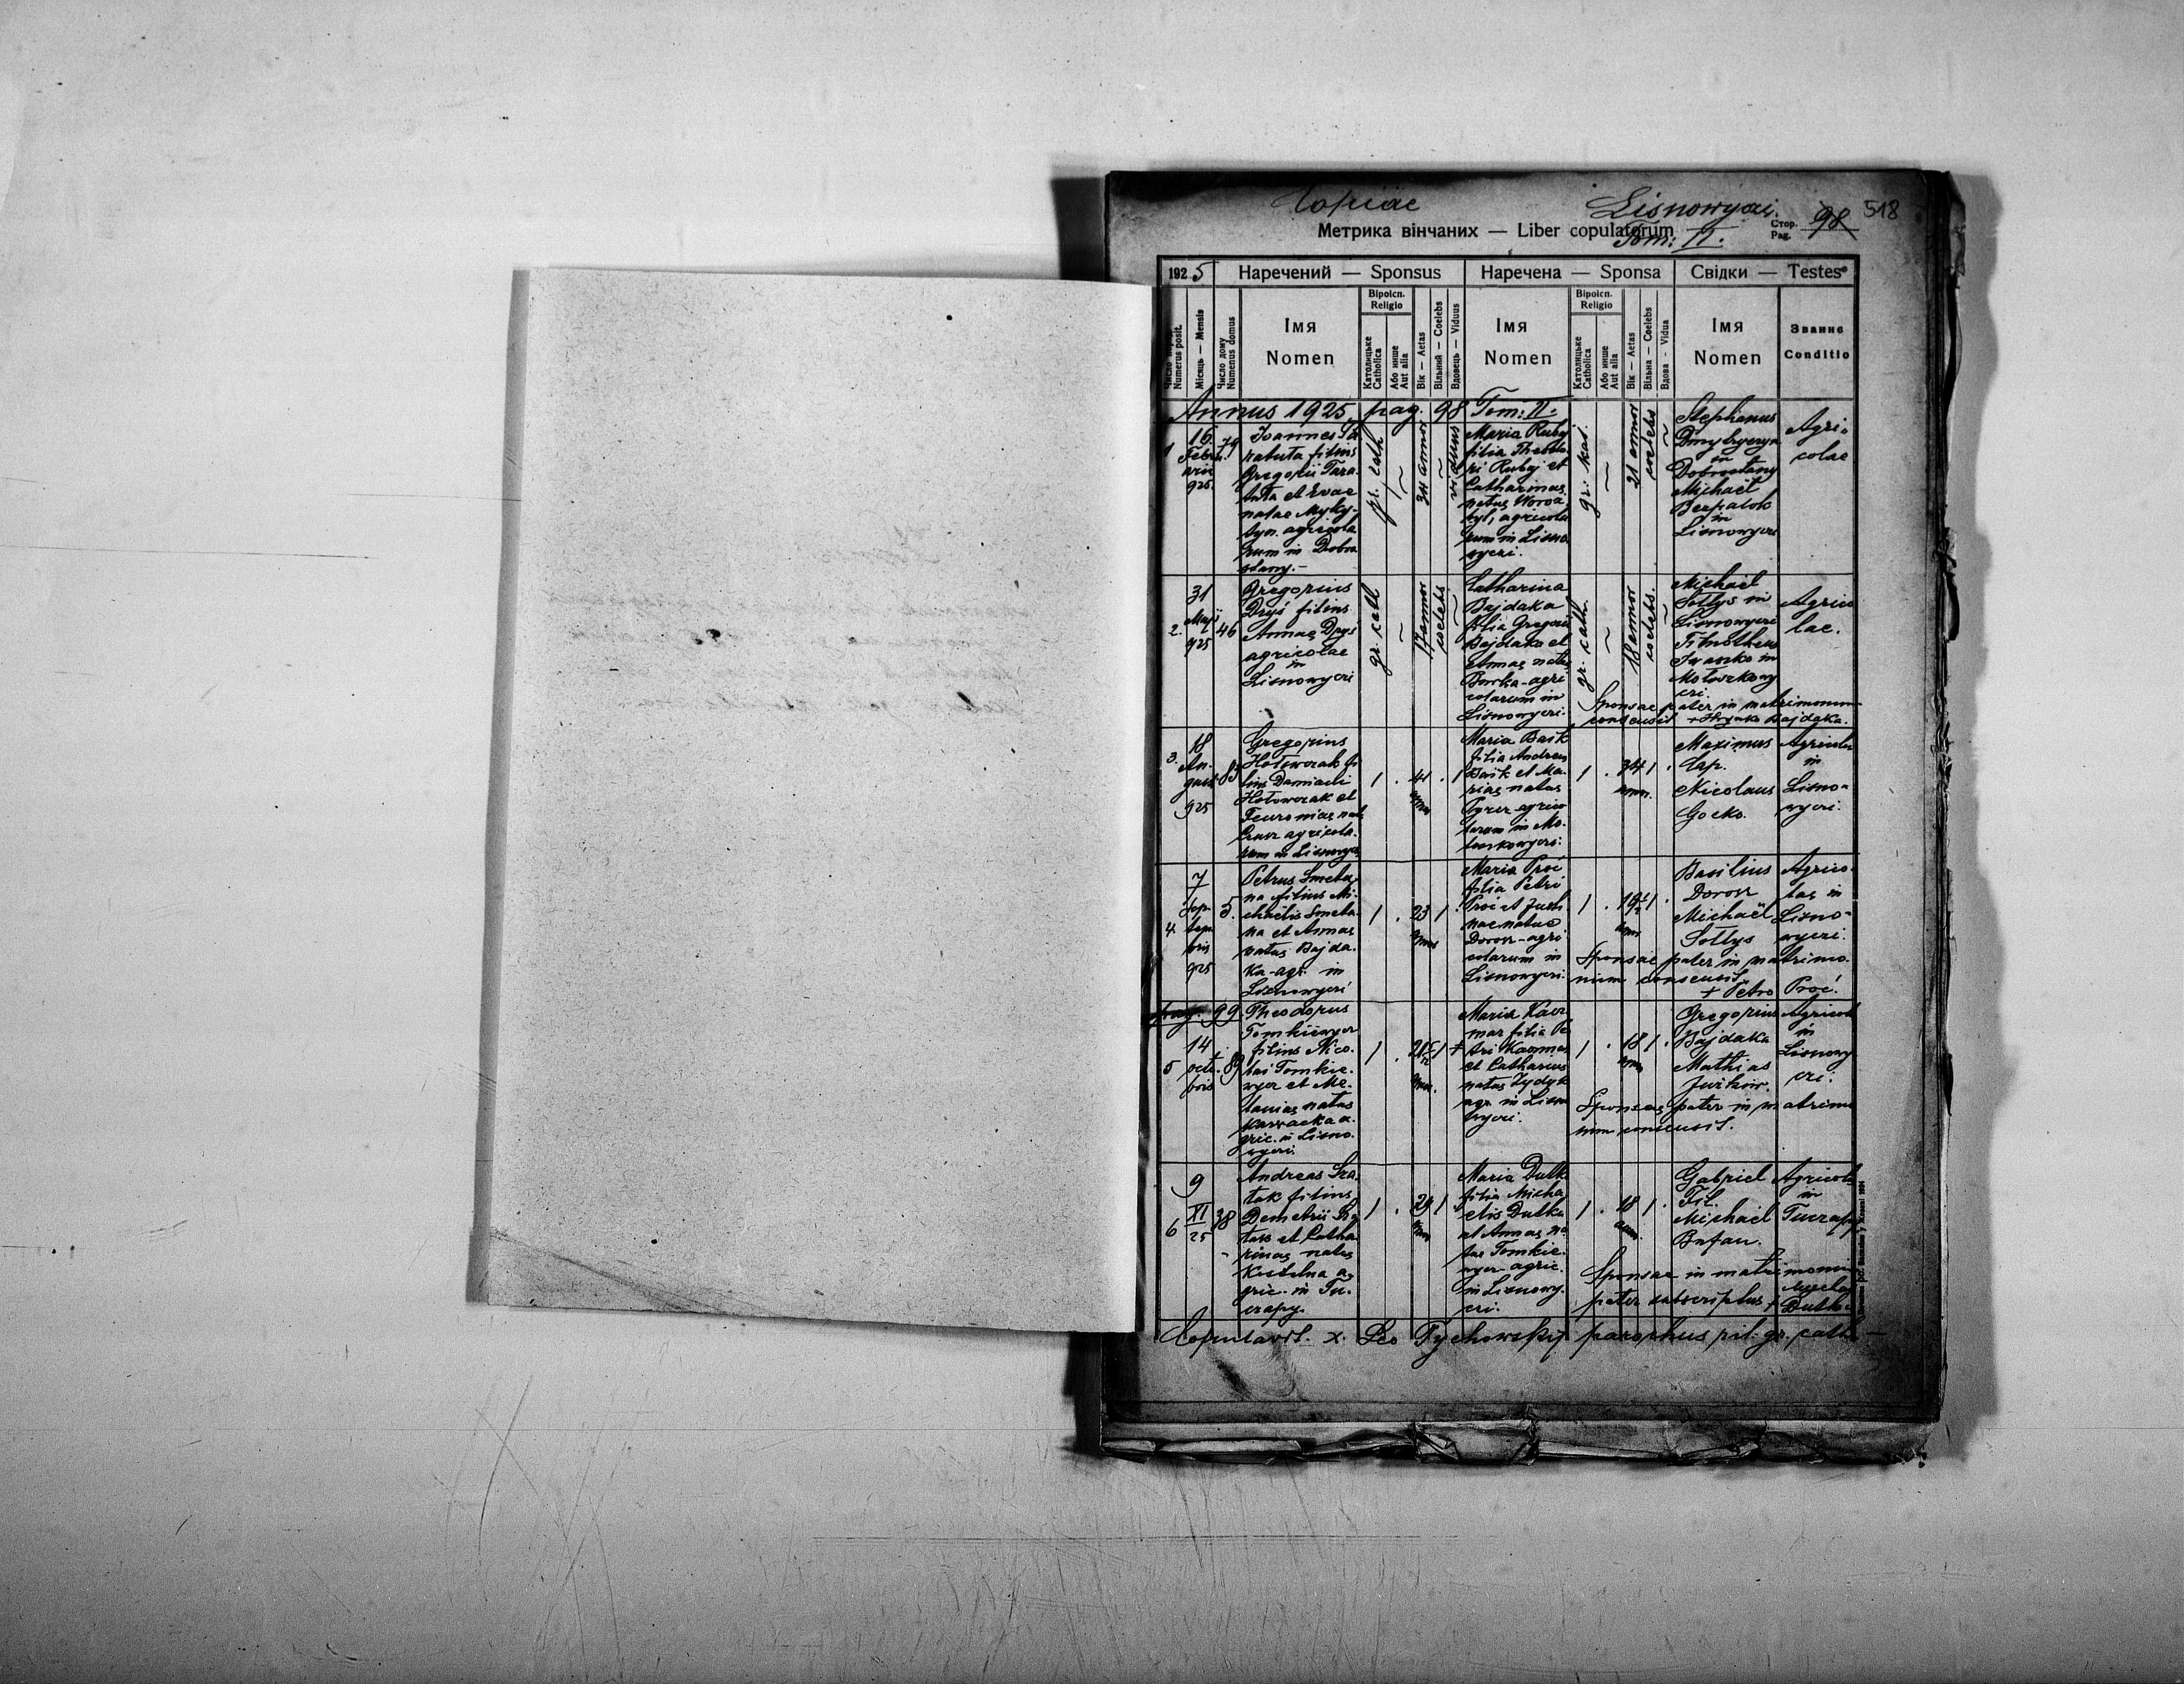 Copiae
Lisnowyczi.
518
Метрика вінчаних — Liber copulatorum
Tom: II.
Стор.
Pag. 98
1925
Наречений — Sponsus
Наречена — Sponsa
Свідки — Testes
Numerus posit.
Місяць — Mensis
Число дому
Numerus domus
Імя
Nomen
Віроісп.
Religio
Католицьке
Catholica
Або инше
Aut alia
Вік — Aetas
Вільний — Coelebs
Вдовець — Viduus
Імя
Nomen
Віроісп.
Religio
Католицьке
Catholica
Або инше
Aut alia
Вік — Aetas
Вільна — Coelebs
Вдова - Vidua
Імя
Nomen
Званнє
Conditio
Annus 1925, pag. 98 Tom: II.
1
16
Febru
arii
925.
79
Joannes Ta
rabuta filius
Gregorii Tara
buta et Evae
natae Myky-
tyn agricola
rum in Dobro
stany.-
gr. cath
34 annor
viduus
Maria Rubaj
filia Theodo
ri Rubaj et
Catharinae
natae Woroa
tyl, agricola
rum in Lisno
wyczi.
gr. kat.
21 annor
coelebs
Stephanus
in
Dobrostany
Michaël
Bezpalok
in
Lisnowyczi
Agri-
colae
2.
31
Maji
925
46
Gregorius
Dryś filius
Annae Dryś
agricolae
in
Lisnowyczi
gr. cath
17 annor
coelebs
Catharina
Bajdaka
filia Gregorii
Bajdaka et
Annae natae
Burka-agri
colarum in
Lisnowyczi.
gr. cath.
18 annor
coelebs.
Michaël
Sołtys in
Lisnowyczi
Timotheus
Iwaszko in
Mołoszkowy
czi.
Agrico
lae.
Sponsae pater in matrimonium
consensit + Hryńko Bajdaka.
3.
18
Au-
gusti
925
83
Gregorius
Hołowczak fi
lius Damiani
Hołowczak et
Feuroniae nat.
agricola.
rum in Lisnowycz
1 . 41 . 1
annor
Maria Basik
filia Andreae
Basik et Ma-
riae natae
agrico
larum in Mo-
łoszkowyczi.
1 . 34 1 .
annor.
Maximus
Nicolaus
Gocko.
Agricolae
in
Lisno-
wyczi.
4.
7
Sep-
tem
bris
925
5.
Petrus Smeta
na filius Mi-
chaëlis Smeta
na et Annae
natae Bajda-
ka-agr. in
Lisnowyczi
1 . 23 1 .
annor
Maria Proć
filia Petri
Proć et Justi
nae natae
Dorosz-agri
colarum in
Lisnowyczi.
1 . 19 1 .
annor
Basilius
Dorosz
Michaël
Sołtys
Agrico-
lae in
Lisno-
wyczi.
Sponsae pater in matrimo-
nium consensit.
+ Petro Proć.
pag. 99
5
14
octo-
bris
89
Theodorus
Tomkiewycz
filius Nico-
lai Tomkie-
wycz et Me-
laniae natae
a-
gric. in Lisno-
wyczi.
1
Maria Kacz
mar filia Pe
tri Kaczmar
et Catharinae
natae Żydyk
agr. in Lisno
wyczi.
1 . 18 1 .
annor
Gregorius
Bajdaka
Mathias
Jurkiw.
Agricol
in
Lisnowy
czi.
Sponsae pater in matrimo
nium consensit.
6
9
XI
25
38
Andreas Sza-
łak filius
Demetrii Sza
łak et Catha-
rinae natae
Kostelna a-
gric. in Tu-
czapy.
1 . 29 1
annor
Maria Dutka
filia Micha
elis Dutka
et Annae na
tae Tomkie-
wycz agric.
in Lisnowy-
czi.
1 . 18 1 .
annor.
Gabriel
Fil.
Michaël
Bufan.
Agricolae
in
Tuczapy
Sponsae in matrimonium
pater subscriptus + Mychaj
Dutka
Copulavit. x. Leo Tychowskyj parochus ril. gr. cath